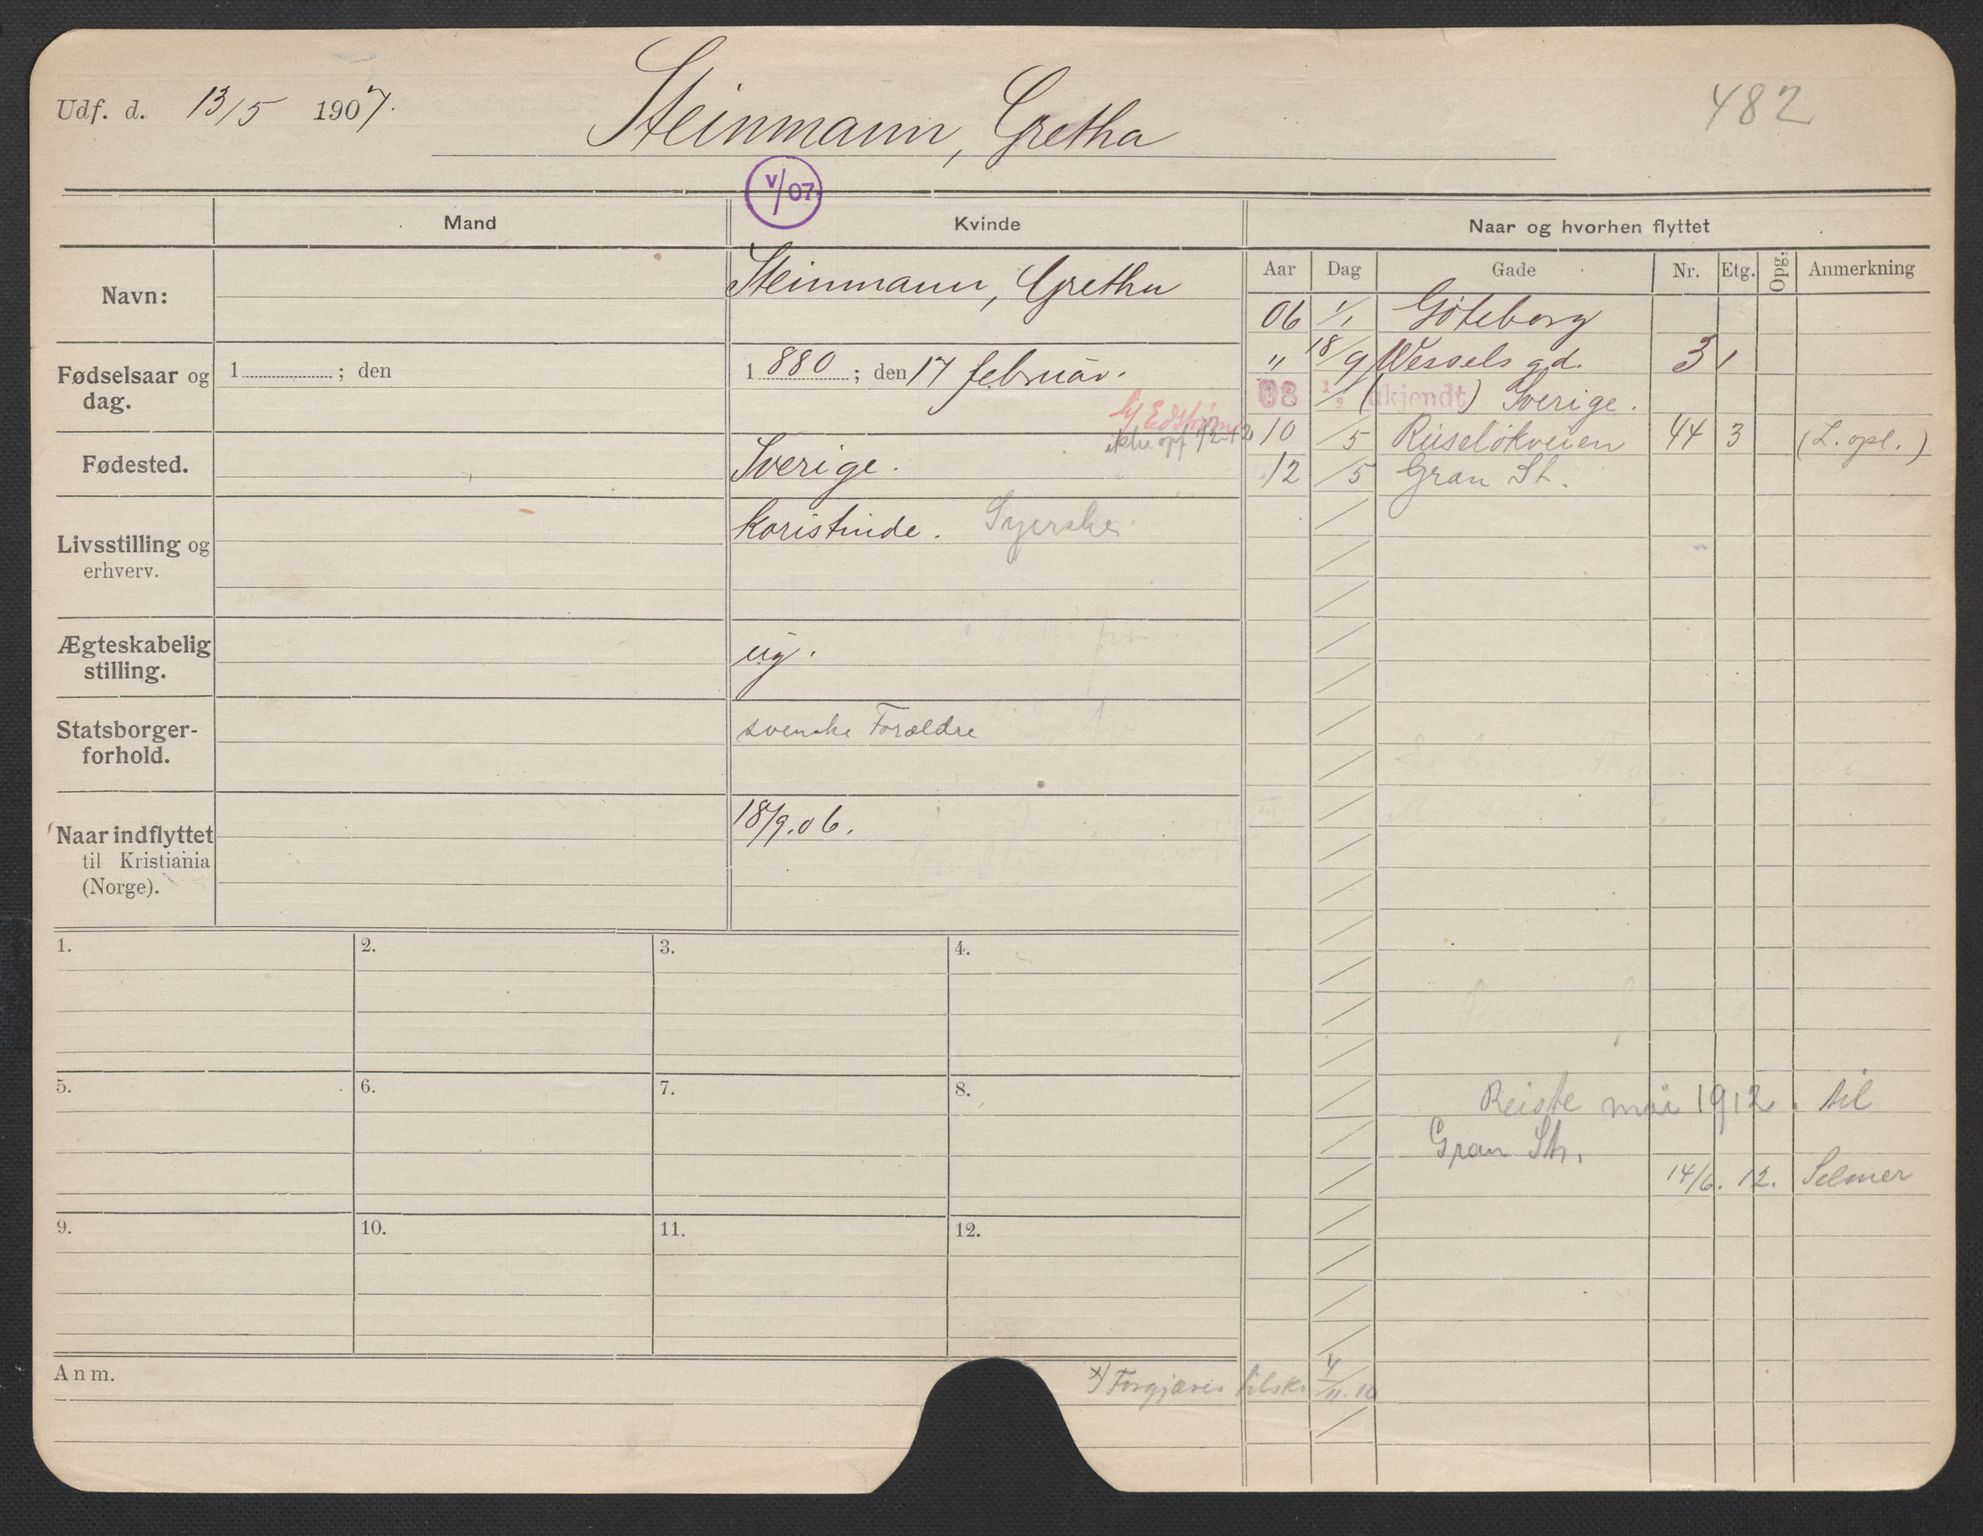 Udf. d. 13/5 1907.
Steinmann, Gretha
482
V/07
Mand
Kvinde
Naar og hvorhen flyttet
Navn:
Steinmann, Gretha
Aar Dag Gade Nr. Etg. Opg. Anmerkning
06 1/1 Göteborg
" 18/9 Wessels gd. 3 1
08 1/2 (ukjendt) Sverige.
10 /5 Ruseløkveien 44 3 (L. opl.)
12 /5 Gran St.
Fødselsaar og dag.
1 ; den
1880 ; den 17 februar.
Fødested.
Sverige.
Livsstilling og
erhverv.
Koristinde. Syerske
Ægteskabelig
stilling.
ug.
Statsborger-
forhold.
svenske Forældre
Naar indflyttet
til Kristiania
(Norge).
18/9.06.
1. 2. 3. 4.
5. 6. 7. 8.
9. 10. 11. 12.
Reiste mai 1912. til
Gran St.
14/6. 12. Selmer
Anm.
x) Forgjæves tilsk. 4/11.10